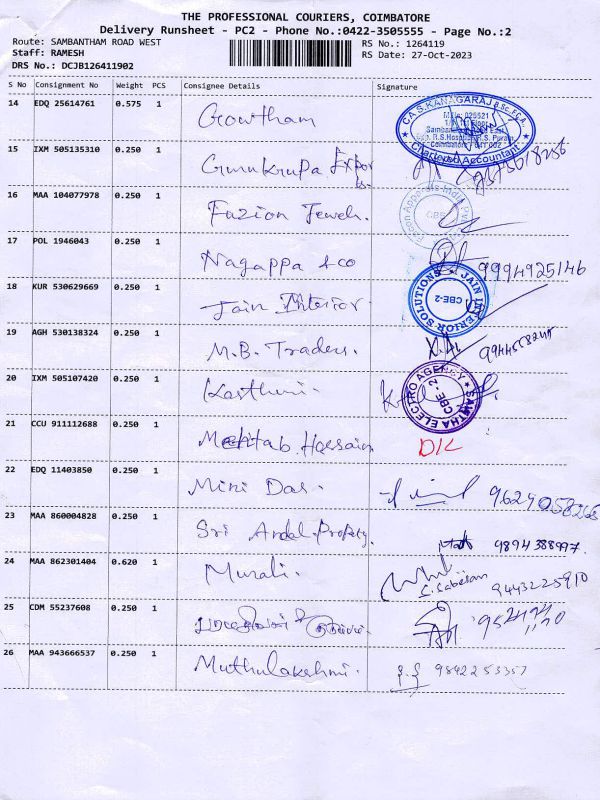 THE PROFESSIONAL COURIERS, COIMBATORE
Delivery Runsheet - PC2 - Phone No.:0422-3505555 - Page No.:2
Route: SAMBANTHAM ROAD WEST RS No.: 1264119
Staff: RAMESH RS Date: 27-Oct-2023
DRS No.: DCJB126411902
S No Consignment No Weight PCS Consignee Details Signature
14 EDQ 25614761 0.575 1 Gowtham
C.A.S.KANAGARAJ B.Sc.,F.C.A.
M.No: 025521
Chartered Accountant
15 IXM 505135310 0.250 1 Gurukrupa Expor
ts.
16 MAA 104077978 0.250 1 Fazion Jewels.
CBE
17 POL 1946043 0.250 1 Nagappa & co 9994925146
18 KUR 530629669 0.250 1 Jain Interior
JAIN INTERIOR SOLUTIONS CBE-2
19 AGH 530138324 0.250 1 M.B. Traders.
20 IXM 505107420 0.250 1 Kasthuri.
SAMTHA ELECTRO AGENCY CBE-2
21 CCU 911112688 0.250 1 Mehtab Hossain D/L
22 EDQ 11403850 0.250 1 Mini Das.
23 MAA 860004828 0.250 1 Sri Andal Property. 9894388997.
24 MAA 862301404 0.620 1 Murali. 9443225910
25 CDM 55237608 0.250 1
26 MAA 943666537 0.250 1 Muthulakshmi. 9842253357